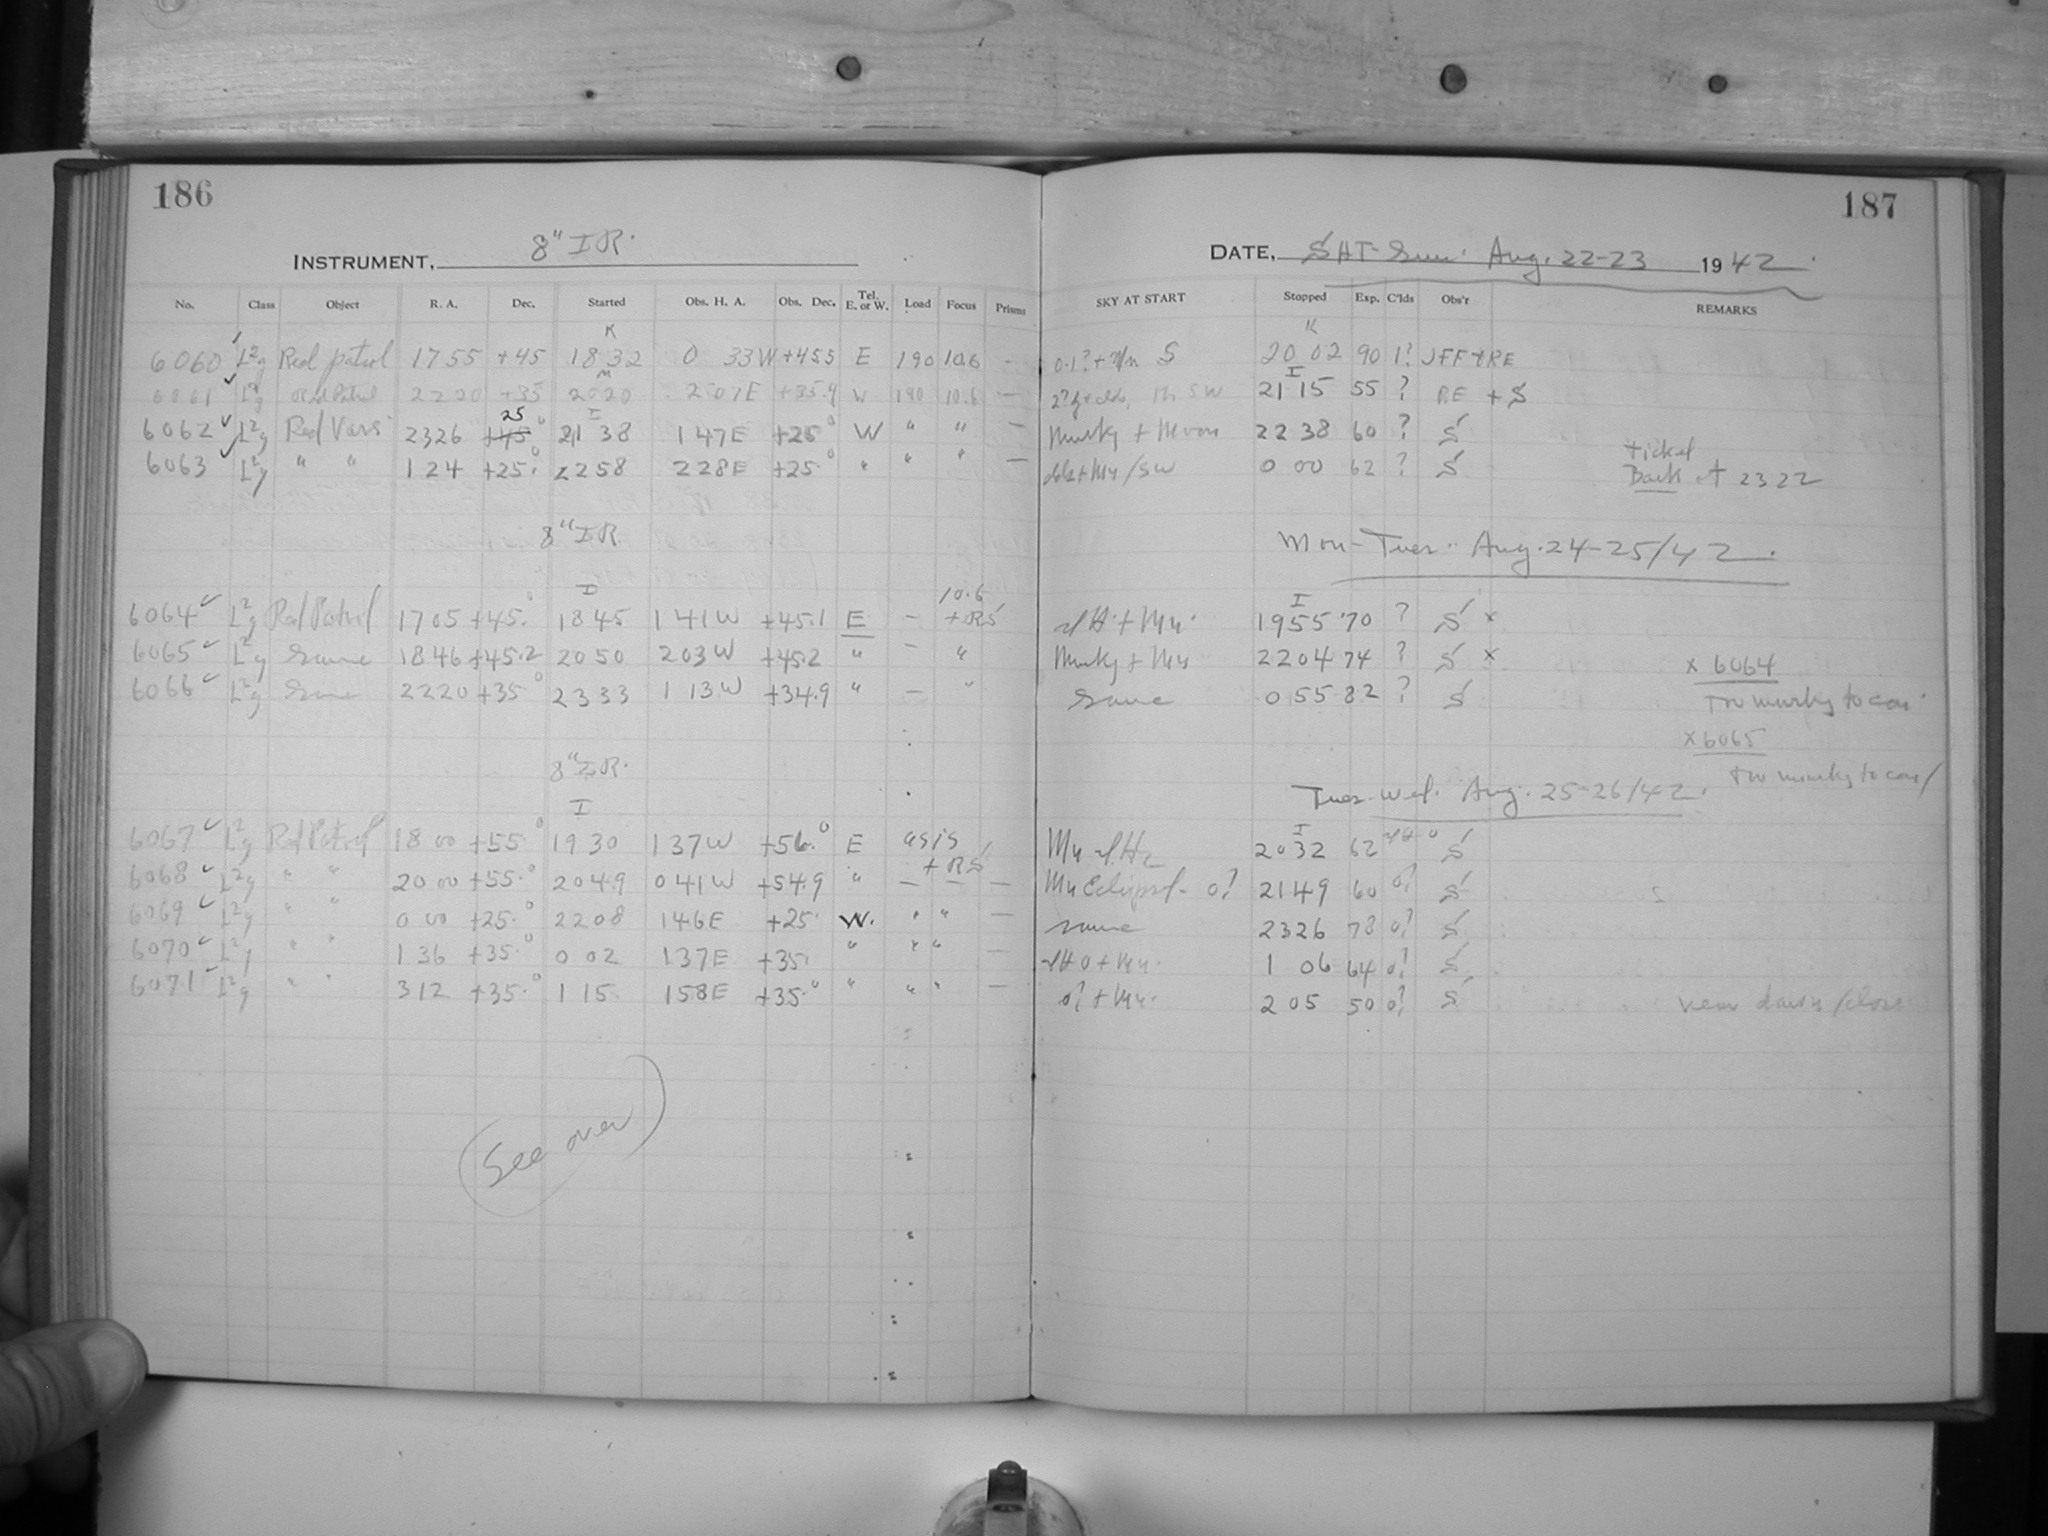 186
INSTRUMENT, 8" IR.
No. Class Object R. A. Dec. Started Obs. H. A. Obs. Dec. Tel. E. or W. Load Focus Prisms
K
6060 Red patrol 1755 +45 18 32 0 33W +45.5 E 190 10.6 -
M
6061 Red Patrol 2220 +35 2020 2 07E +35.9 W 190 10.6 —
25 I
6062 Red Vars 2326 +45° 21 38 1 47E +25° W " " —
6063 " " 1 24 +25.° 2258 2 28E +25.° " " " —
8" IR.
I 10.6
6064 Red Patrol 1705 +45.° 1845 1 41W +45.1 E — +RS
6065 Same 1846 +45.2 2050 2 03W +45.2 " — "
6066 Same 2220 +35° 2333 1 13W +34.9 " — "
8" IR.
I
6067 Red Patrol 18 00 +55° 1930 1 37W +56.° E as is
+ RS
6068 " " 20 00 +55.° 2049 0 41W +54.9 " — — —
6069 " " 0 00 +25.° 2208 1 46E +25. W. " " —
6070 " " 1 36 +35.° 0 02 1 37E +35. " " " —
6071 " " 3 12 +35.° 1 15 1 58E +35.° " " " —
(See over)
187
DATE, SAT-Sun. Aug. 22-23 1942.
SKY AT START Stopped Exp. C'lds Obs'r REMARKS
K
S 20 02 90 1? JFF+RE
I
SW 21 15 55 ? RE + S
Murky + Moon 22 38 60 ? S
/SW 0 00 62 ? S
ticked
Back at 2322
Mon-Tues. Aug. 24-25/42.
I
1955 70 ? S x
Murky + 2204 74 ? S x
x 6064
Same 0 55 82 ? S
Too murky to
x 6065
too murky to
Tues-Wed. Aug. 25-26/42.
I
2032 62 0 S
Eclipsed - 0? 2149 60 0? S
same 2326 78 0? S
1 06 64 0? S
0? + 2 05 50 0? S near dawn/close